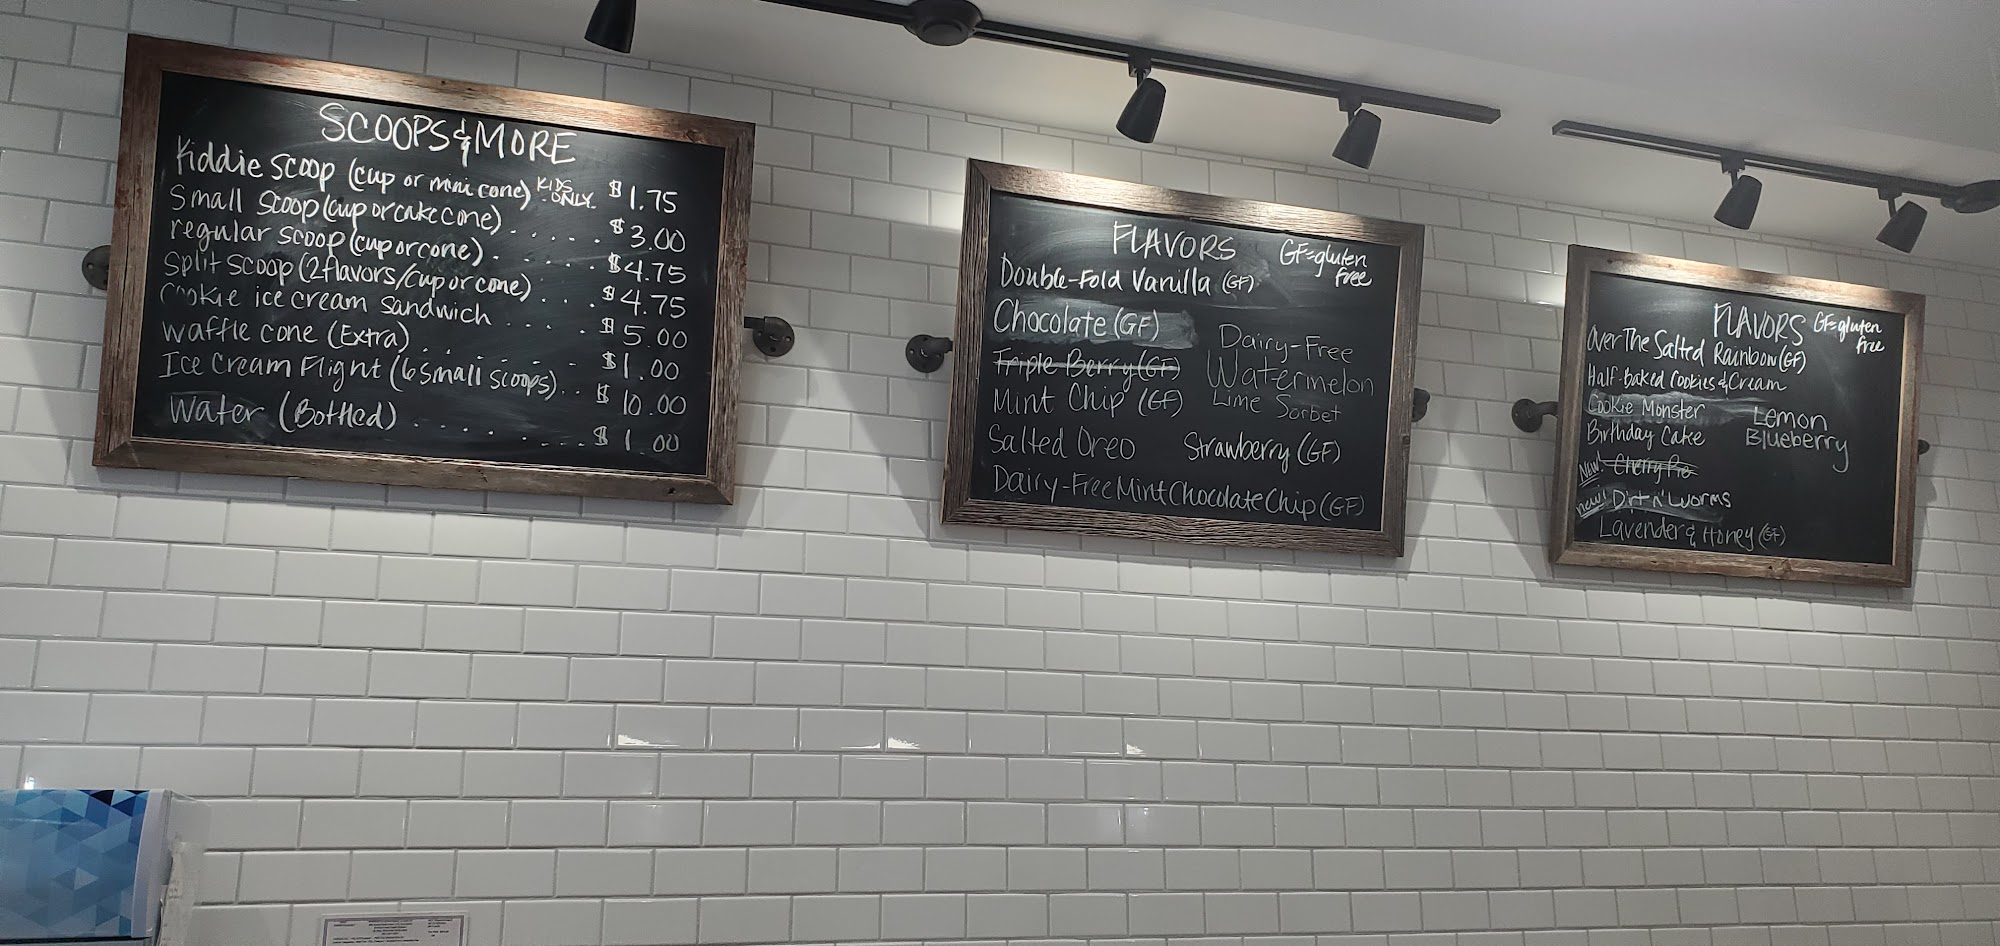 SCOOPS & MORE
Kiddie scoop (cup or mini cone) KIDS ONLY. $1.75
Small scoop (cup or cake cone) . . . . . $3.00
regular scoop (cup or cone) . . . . . . $4.75
Split scoop (2 flavors/cup or cone) . . . $4.75
cookie ice cream sandwich . . . . . $5.00
waffle cone (Extra) . . . . . . . . . $1.00
Ice Cream Flight (6 small scoops) . . $10.00
Water (Bottled) . . . . . . . . . . $1.00
FLAVORS
GF=gluten
free
Double-Fold Vanilla (GF)
Chocolate (GF)
Triple Berry (GF)
Mint Chip (GF)
Dairy-Free
Watermelon
Lime Sorbet
Salted Oreo
Strawberry (GF)
Dairy-Free Mint Chocolate Chip (GF)
FLAVORS
GF=gluten
free
Over The Salted Rainbow (GF)
Half-Baked Cookies & Cream
Cookie Monster
Birthday Cake
Lemon
Blueberry
New! Cherry Pie
new! Dirt n' Worms
Lavender & Honey (GF)